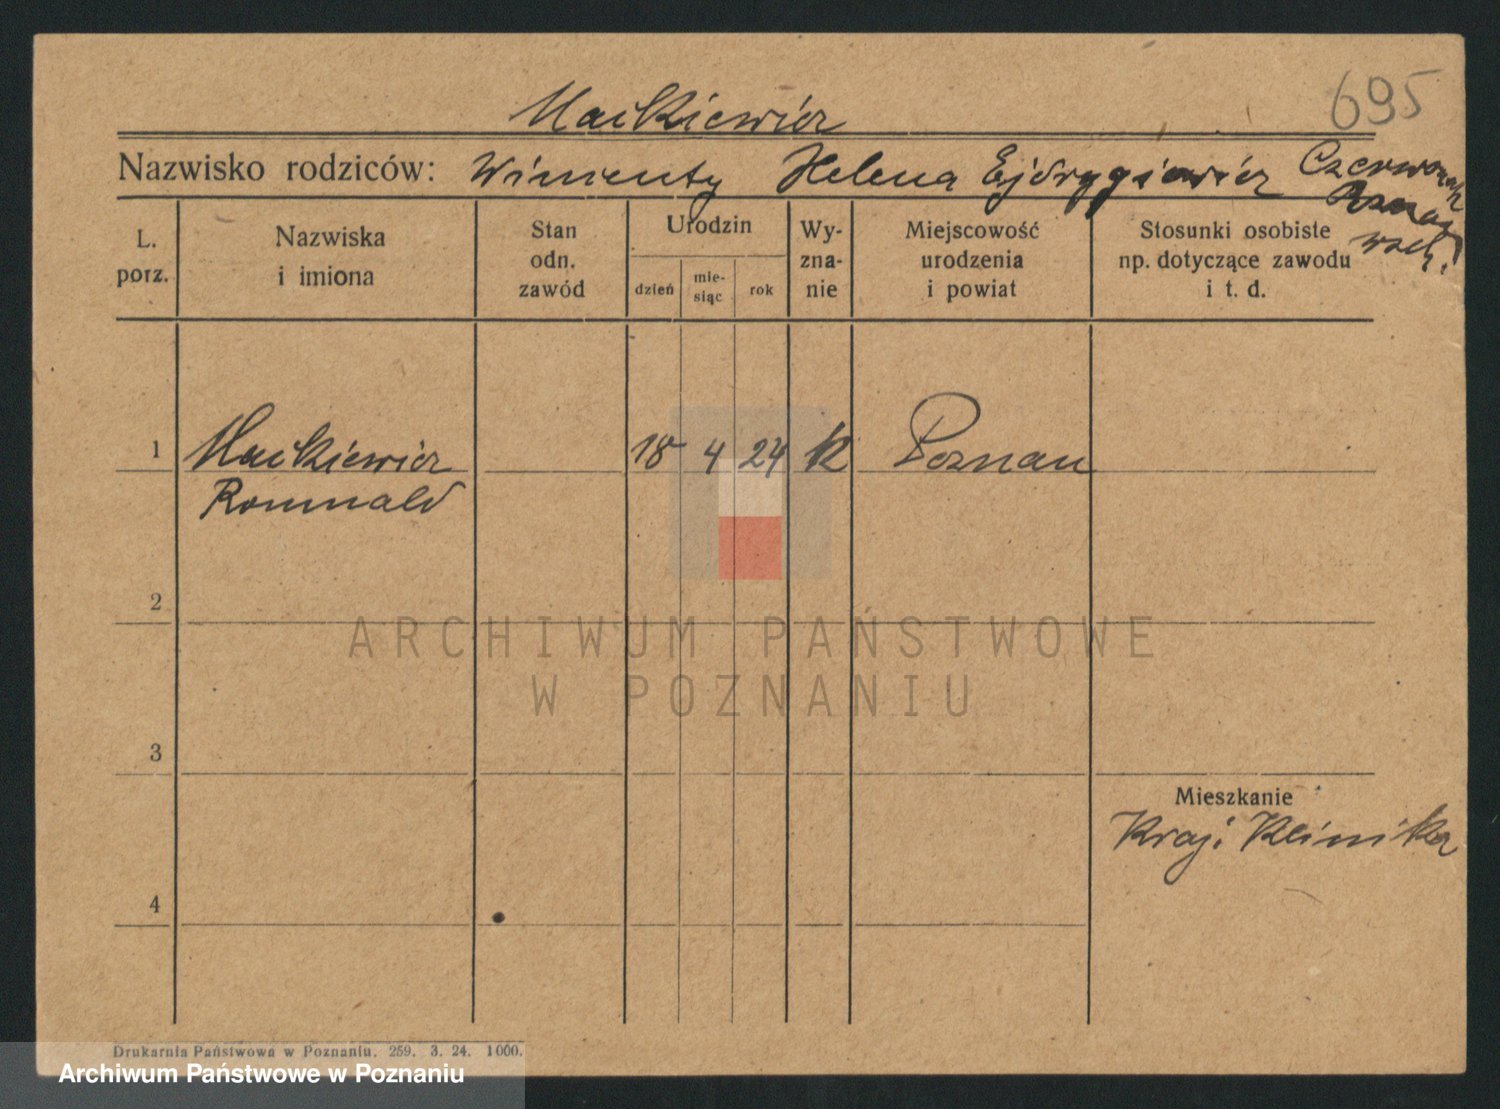 695
Maćkiewicz
Nazwisko rodziców: Wincenty Helena Czerwonak
Poznań
wsch.
L. porz. Nazwiska i imiona Stan odn. zawód Urodzin dzień mie-siąc rok Wy-zna-nie Miejscowość urodzenia i powiat Stosunki osobiste np. dotyczące zawodu i t. d.
1 Maćkiewicz 18 4 24 k Poznań
Romuald
2
ARCHIWUM PAŃSTWOWE
W POZNANIU
3
Mieszkanie
Kraj. Klinika
4
Drukarnia Państwowa w Poznaniu. 259. 3. 24. 1000.
Archiwum Państwowe w Poznaniu